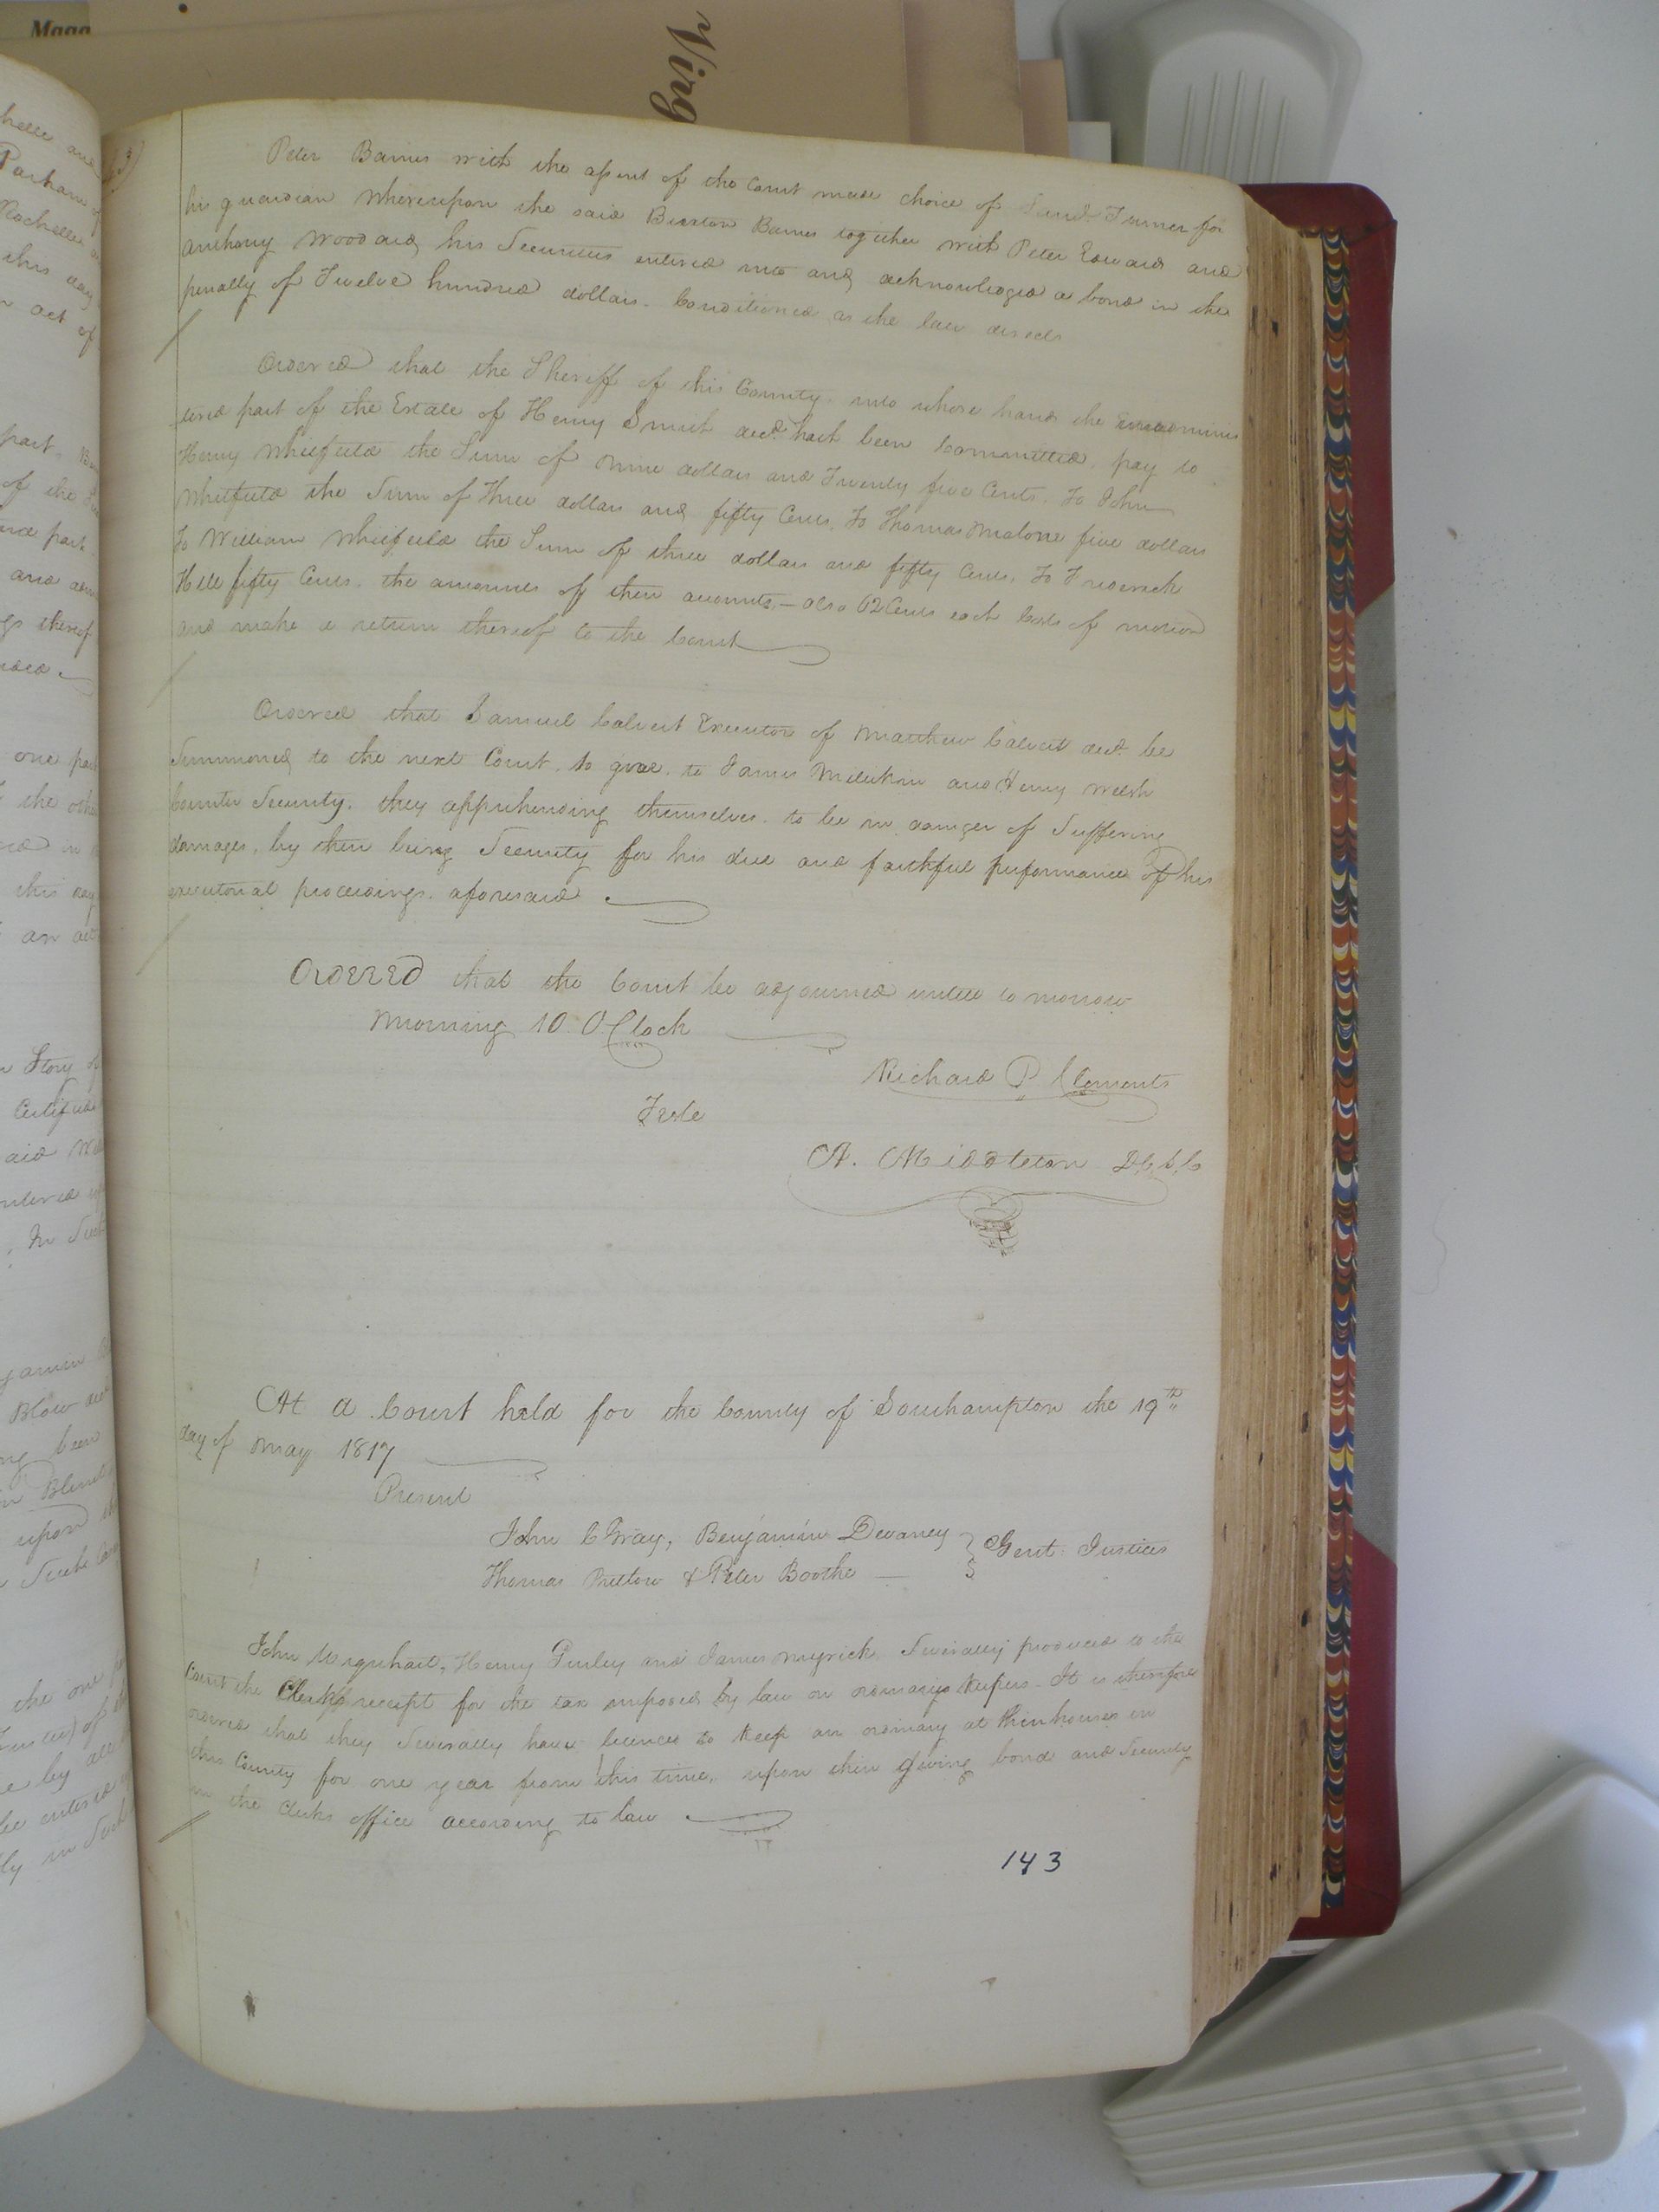 Maga
Virg
Peter Barnes with the assent of the Court made choice of Turner for
his guardian Whereupon the said Barnes together with Peter Edwards and
Anthony Woodard his Securities entered into and acknowledged a bond in the
penalty of Twelve hundred dollars. Conditioned as the law directs
Ordered that the Sheriff of this County into whose hands the unadminis
tered part of the Estate of Henry Smith decd. hath been Committed, pay to
Henry Whitfield the Sum of nine dollars and Twenty five Cents. To John
Whitfield the Sum of Three dollars and fifty Cents, To Thomas Malone five dollars
To William Whitfield the Sum of three dollars and fifty Cents, To Frederick
Hill fifty Cents. the amounts of their accounts, - also 62 Cents each Costs of motion
and make a return thereof to the Court
Ordered that Samuel Calvert Executor of Matthew Calvert decd. be
Summoned to the next Court. to give. to James Millikin and Henry Welsh
Counter Security. they apprehending themselves. to be in danger of Suffering
damages, by their being Security for his due and faithful performance of his
executorial proceedings. aforesaid
Ordered that the Court be adjourned untill to morrow
Morning 10 O.Clock
Richard P Clements
Teste
A. Middleton D.C.S.C
At a Court held for the County of Southampton the 19th
day of May 1817
Present
John C Gray, Benjamin Devaney } Gent. Justices
Thomas Pretlow & Peter Boothe
John Urquhart, Henry Gurley and James Myrick Severally produced to the
Court the Clerks receipt for the tax imposed by law on ordinary Keepers. It is therefore
ordered that they Severally have licences to Keep an ordinary at their houses in
this County for one year from this time, upon their giving bond and Security
in the Clerks office according to law
143